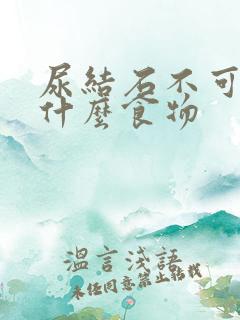 尿結石不可
什麼食物
溫言淺語
未经同意禁止转载